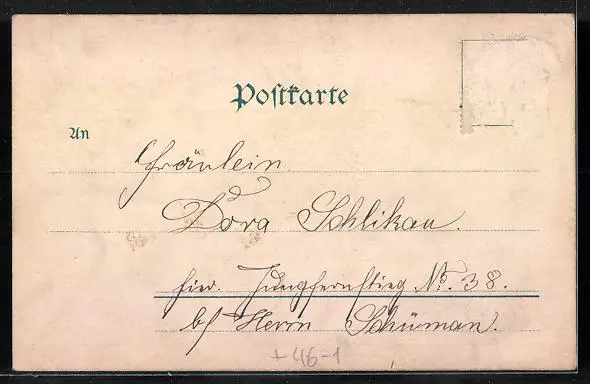 Postkarte
An
Fräulein.
Dora Schlikau.
hier. Jungfernstieg No. 38.
b/ Herrn Schüman.
+46-1